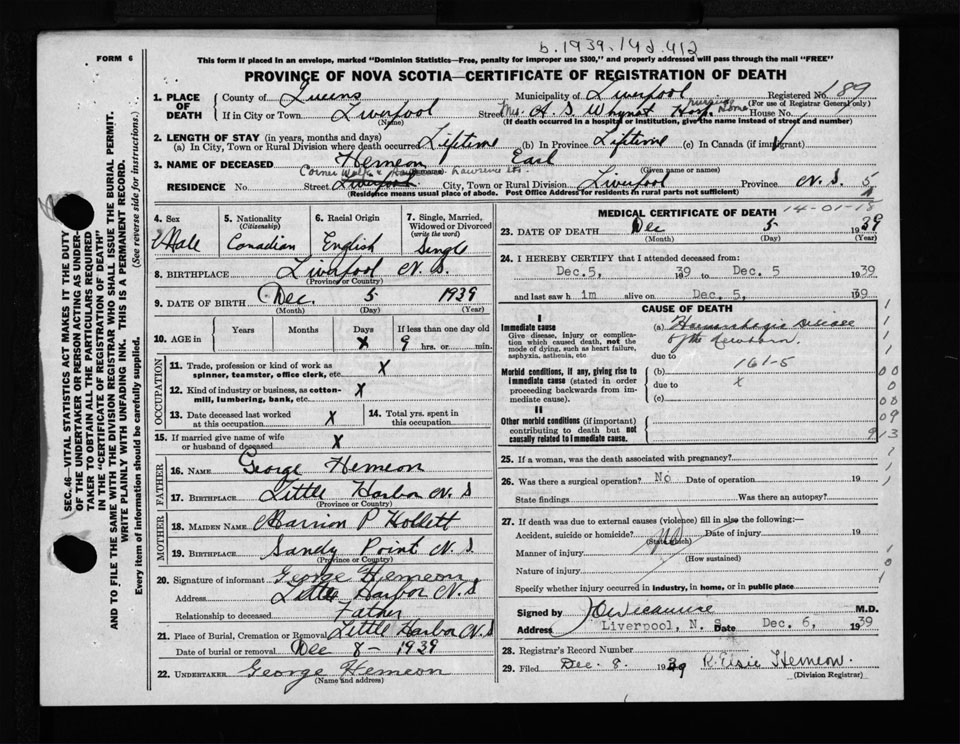 b. 1939. 142.412
FORM 6
This form if placed in an envelope, marked "Dominion Statistics—Free, penalty for improper use $300," and properly addressed will pass through the mail "FREE"
PROVINCE OF NOVA SCOTIA—CERTIFICATE OF REGISTRATION OF DEATH
1. PLACE OF DEATH
County of Queens Municipality of Liverpool Registered No. 189
(For use of Registrar General only)
If in City or Town Liverpool Street Mrs. A. S. Whynot Hosp. nursing Home House No.
(Name) (If death occurred in a hospital or institution, give the name instead of street and number)
2. LENGTH OF STAY (in years, months and days)
(a) In City, Town or Rural Division where death occurred Lifetime (b) In Province Lifetime (c) In Canada (if immigrant)
3. NAME OF DECEASED Hemeon Earl
(Given name or names)
Corner Lawrence sts.
RESIDENCE No. Street Liverpool City, Town or Rural Division Liverpool Province N. S.
(Residence means usual place of abode. Post Office Address for residents in rural parts not sufficient)
4. Sex
Male
5. Nationality
(Citizenship)
Canadian
6. Racial Origin
English
7. Single, Married, Widowed or Divorced
(write the word)
Single
8. BIRTHPLACE Liverpool N. S.
(Province or Country)
9. DATE OF BIRTH Dec. 5 1939
(Month) (Day) (Year)
10. AGE in Years Months Days If less than one day old
X 9 hrs. or min.
OCCUPATION
11. Trade, profession or kind of work as spinner, teamster, office clerk, etc. X
12. Kind of industry or business, as cotton-mill, lumbering, bank, etc. X
13. Date deceased last worked at this occupation X
14. Total yrs. spent in this occupation.
15. If married give name of wife or husband of deceased X
FATHER
16. NAME George Hemeon
17. BIRTHPLACE Little Harbor N. S
(Province or Country)
MOTHER
18. MAIDEN NAME Marrion P Hollett
19. BIRTHPLACE Sandy Point N. S.
(Province or Country)
20. Signature of informant George Hemeon
Address Little Harbor N. S
Relationship to deceased Father
21. Place of Burial, Cremation or Removal Little Harbor N. S
Date of burial or removal Dec 8 - 1939
22. UNDERTAKER George Hemeon
(Name and address)
MEDICAL CERTIFICATE OF DEATH
14-01-15
23. DATE OF DEATH Dec 5 1939
(Month) (Day) (Year)
24. I HEREBY CERTIFY that I attended deceased from:
Dec. 5, 1939 to Dec. 5 1939
and last saw him alive on Dec. 5, 1939
CAUSE OF DEATH
I
Immediate cause
Give disease, injury or complication which caused death, not the mode of dying, such as heart failure, asphyxia, asthenia, etc
(a) Haemorrhagic Disease
of the newborn.
due to
Morbid conditions, if any, giving rise to immediate cause (stated in order proceeding backwards from immediate cause).
(b) 161-5
due to X
(c)
II
Other morbid conditions (if important) contributing to death but not causally related to immediate cause.
25. If a woman, was the death associated with pregnancy?
26. Was there a surgical operation? No Date of operation 19
State findings Was there an autopsy?
27. If death was due to external causes (violence) fill in also the following:—
Accident, suicide or homicide? Date of injury 19
(State which)
Manner of injury
(How sustained)
Nature of injury
Specify whether injury occurred in industry, in home, or in public place
Signed by M.D.
Address Liverpool, N. S. Date Dec. 6, 1939
28. Registrar's Record Number
29. Filed Dec. 8. 1939 R. Elsie Hemeon.
(Division Registrar)
SEC. 46—VITAL STATISTICS ACT MAKES IT THE DUTY OF THE UNDERTAKER OR PERSON ACTING AS UNDERTAKER TO OBTAIN ALL THE PARTICULARS REQUIRED IN THE "CERTIFICATE OF REGISTRATION OF DEATH" AND TO FILE THE SAME WITH THE DIVISION REGISTRAR WHO SHALL ISSUE THE BURIAL PERMIT.
WRITE PLAINLY WITH UNFADING INK. THIS IS A PERMANENT RECORD.
Every item of information should be carefully supplied. (See reverse side for instructions.)